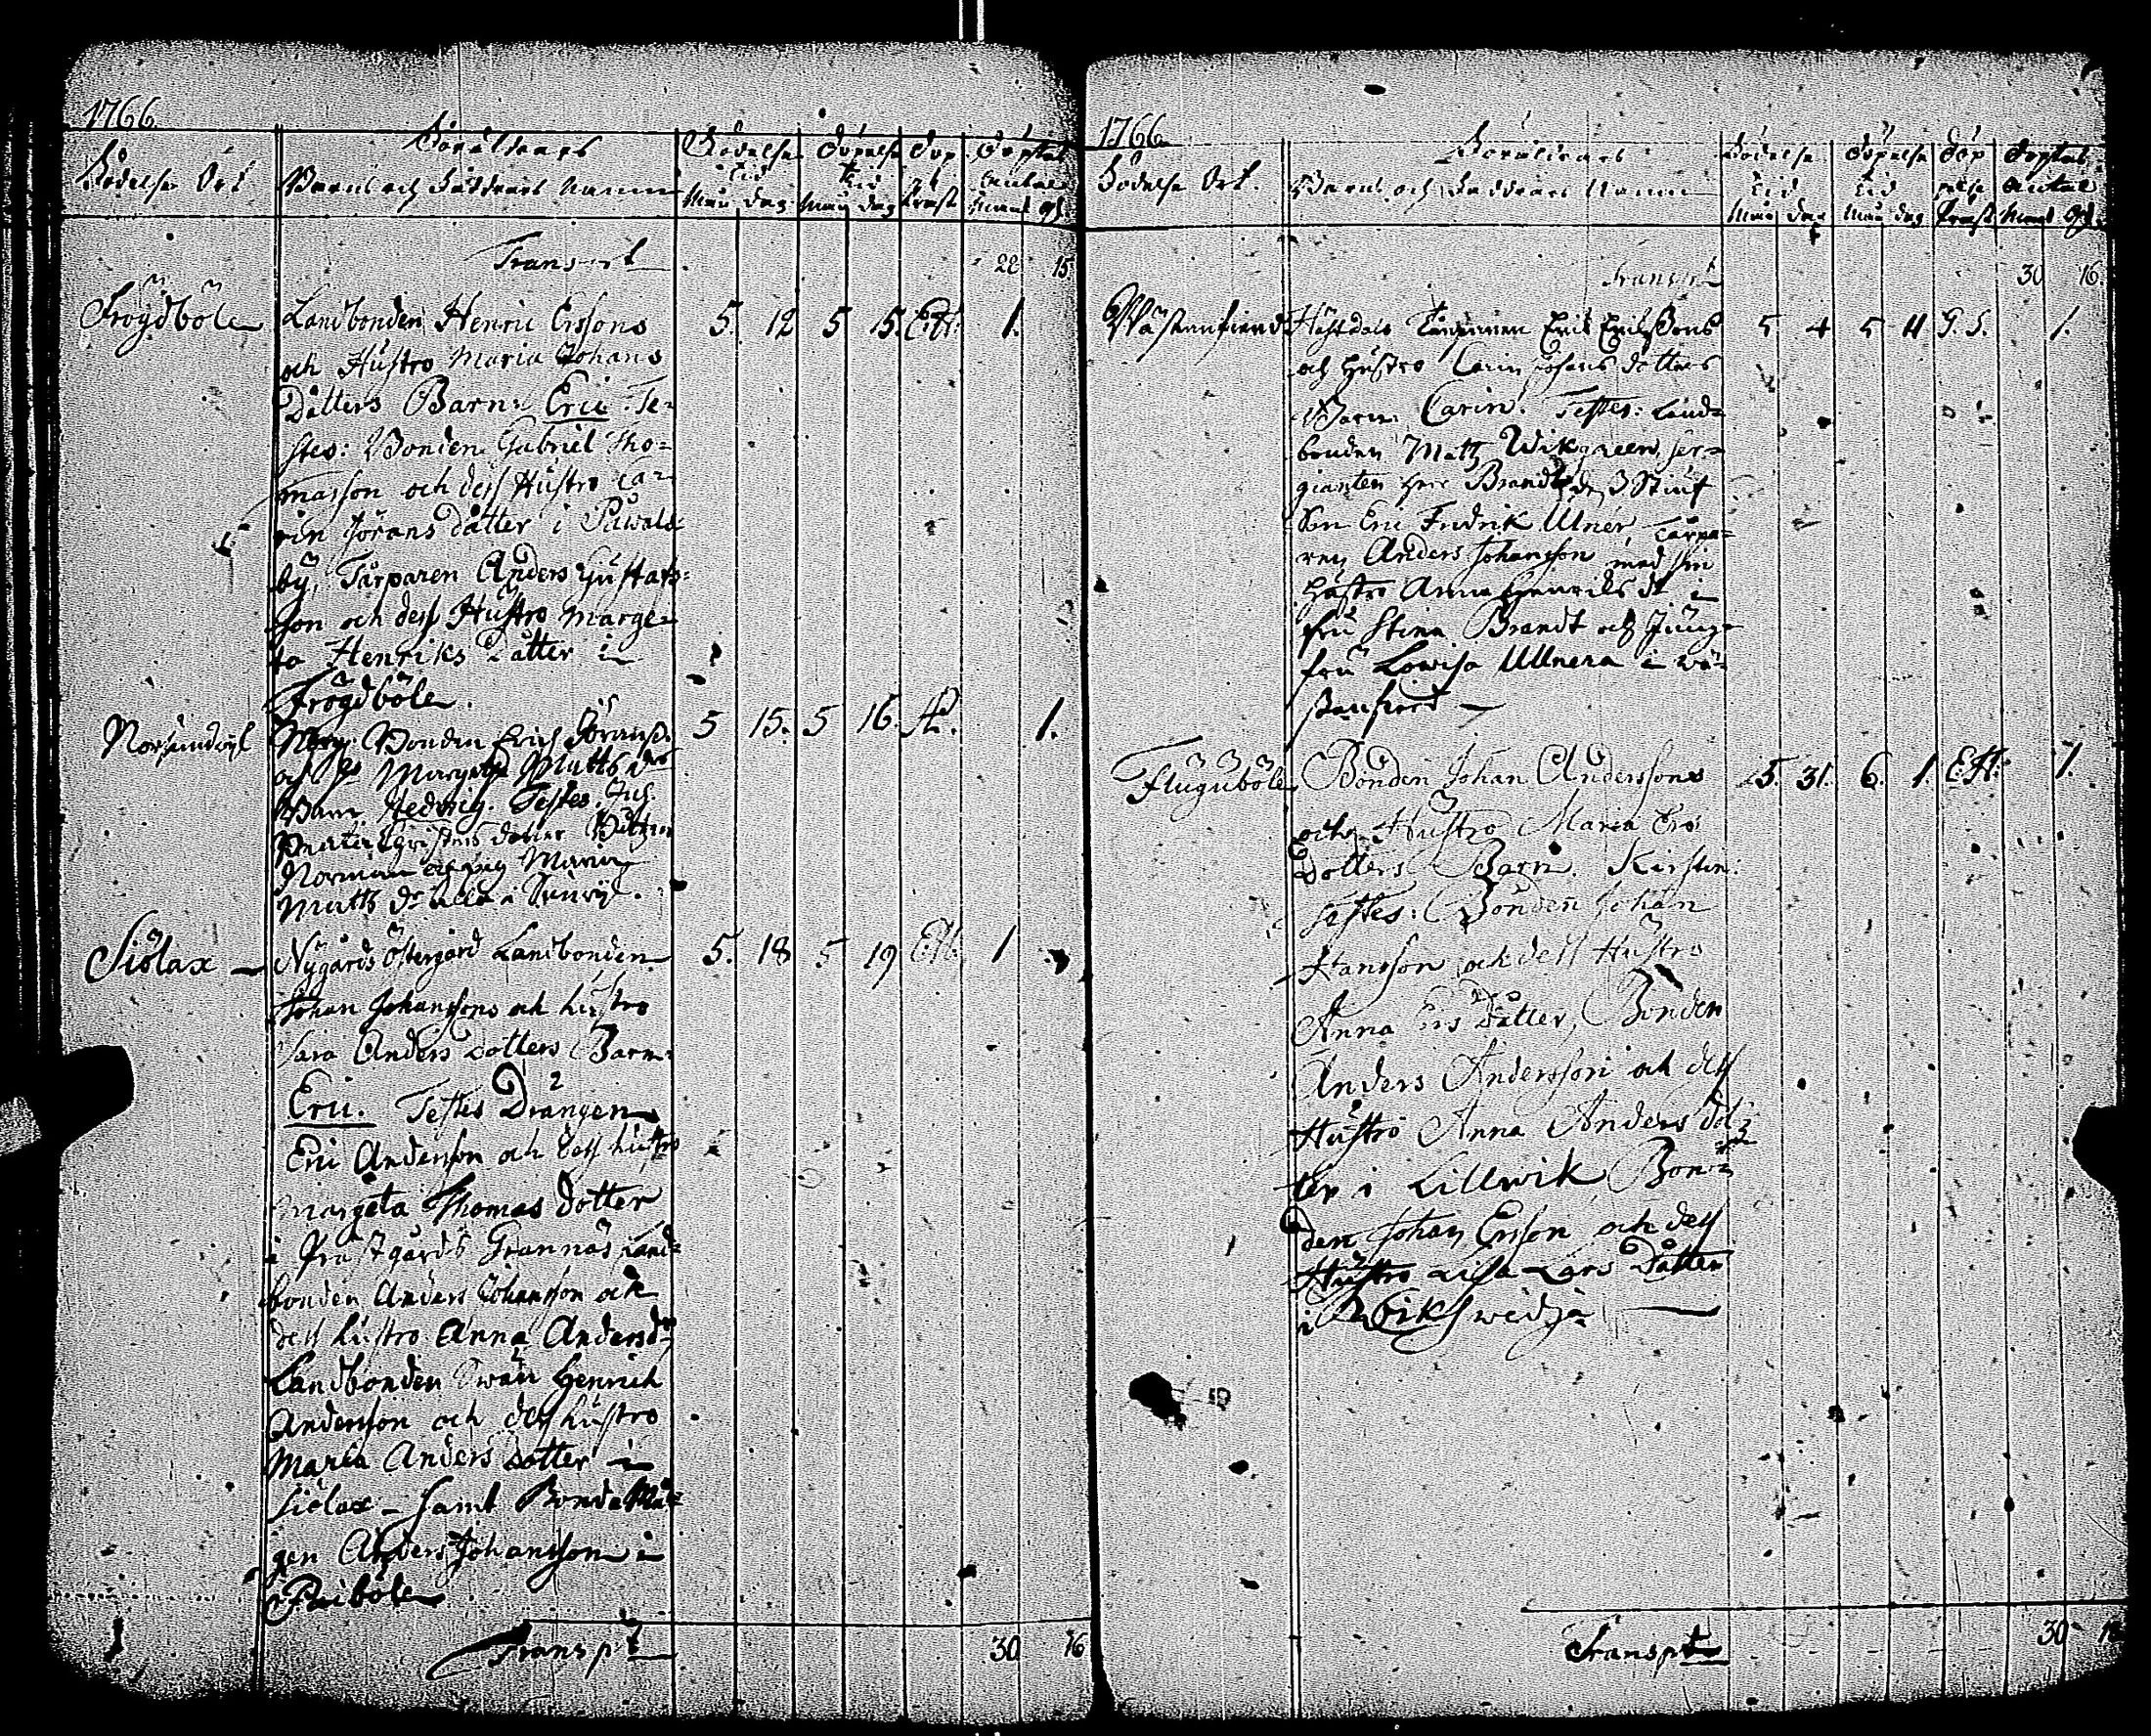 1766
Föräldrars
Födelse Ort
Barns och Faddrars Namn
Födelse Tid
Mån dag
Döpelse Tid
Mån dag
Döp Präst
Döptas Antal
Transpt
28 15
Frögdböle
Landbonden Henric Erssons 5. 12 5 15. E.H. 1.
och Hustro Maria Johans
Dåtters Barn: Eric. Te-
stes: Bonden Gabriel Tho-
masson och dess Hustro Ca-
rin Jörans dåtter i Påwals
by, Tårparen Anders Gustafs-
son och dess Hustro Marge-
ta Henriks Dåtter i
Frögdböle.
Norsundvijk
Bonden Erich Göranss. 5 15. 5 16. 1.
och Margeta Matts dr
Barn Hedwig. Testes.
dotter
Norman Maria
Matts dr alla i
Siölax
Nÿgårds Östergård Landbonden 5. 18 5 19 E.H. 1
Johan Johanssons och hustro
Sara Anders dotters Barn:
Eric. Testes Drängen
Eric Andersson och dess hustro
Margeta Thomas dotter
i Prästgårds Grannäs Land-
bonden Anders Johansson och
dess hustro Anna Andersdr
Landbonden Swän Henrich
Andersson och dess hustro
Maria Anders dotter i
Siölax samt Bonde
gen Anders Johansson i
Päiböle
Transpt 30 16
1766
Föräldrars
Födelse Ort.
Barns och Faddrars Namn
Födelse Tid
Mån dag
Döpelse Tid
Mån dag
Döpelse Präst
Döptas Antal
Transpt
30 16.
Wästanfierd
Torparen Eric Ericssons 5 4 5 11 G.S. 1.
och Hustro Carin Johans dotters
Barn Carin. Testes: Land-
bonden Matts Wikgreen, Ser-
gianten Herr Brandt, dess Stiuf
Son Eric Fredrik Ulner, Tårpa-
ren Anders Johansson med sin
Hustro Anna Henriks dr i
fru Stina Brandt och Jung-
fru Lowisa Ulnera i Wä-
stanfierd
Fluguböle
Bonden Johan Anderssons 5. 31. 6. 1. E.H. 1.
och Hustro Maria Ers
Dotters Barn. Kirstin.
Testes: Bonden Johan
Hansson och dess Hustro
Anna Ers Dåtter, Bonden
Anders Andersson och dess
Hustro Anna Anders Dot-
ter i Lillwik Bon-
den Johan Ersson och dess
Hustro Lisa Lars Dåtter
i Wikswedja
Transpt 30